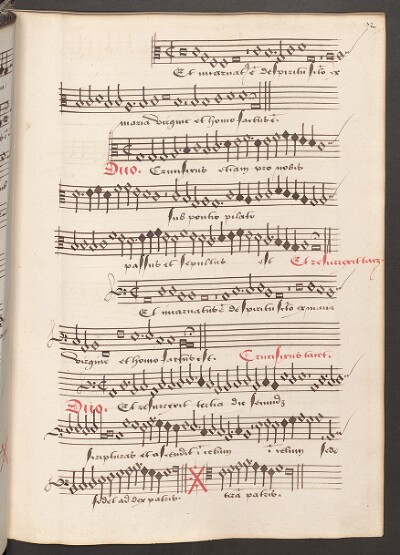 72
Et incarnatus ē de spiritu scto ex
maria virgine et homo factus ē.
Duo. Crucifixus etiam pro nobis
sub pontio pilato
passus et sepultus est Et resurrexit tacz.
Et incarnatus ē de spiritu scto ex maria
virgine et homo factus est. Crucifixus tacet.
Duo. Et resurrexit tertia die secundz
scripturas et ascendit ī celum ī celum sede
sedet ad dex patris. tera patris.